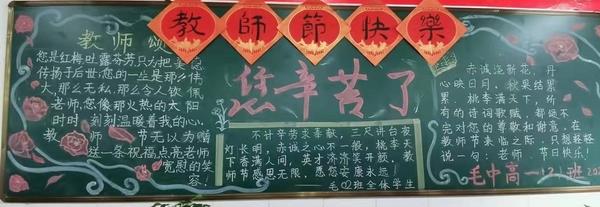 教師節快樂
教师颂
您是红梅吐露芬芳只为把美德
传扬于后世您的一生是那么伟
大,那么无私,那么令人钦佩
老师,您像那火热的太阳
时时刻刻温暖着我的心。
教师节无以为赠
送一条祝福点亮老师
宽慰的笑
容!
您辛苦了
不计辛劳求奉献,三尺讲台夜
灯长明,赤诚之心不一般,桃李天
下香满人间,英才济济笑开颜,教
师节感恩无限,愿您安康永远!
毛02班全体学生
赤诚浇新花,丹
心映日月,秋果结累
累,桃李满天下,所
有的诗词歌赋,都颂不
完对您的尊敬和谢意,在
教师节来临之际,只想轻轻
说一句:老师,节日快乐!
毛中高一(2)班202